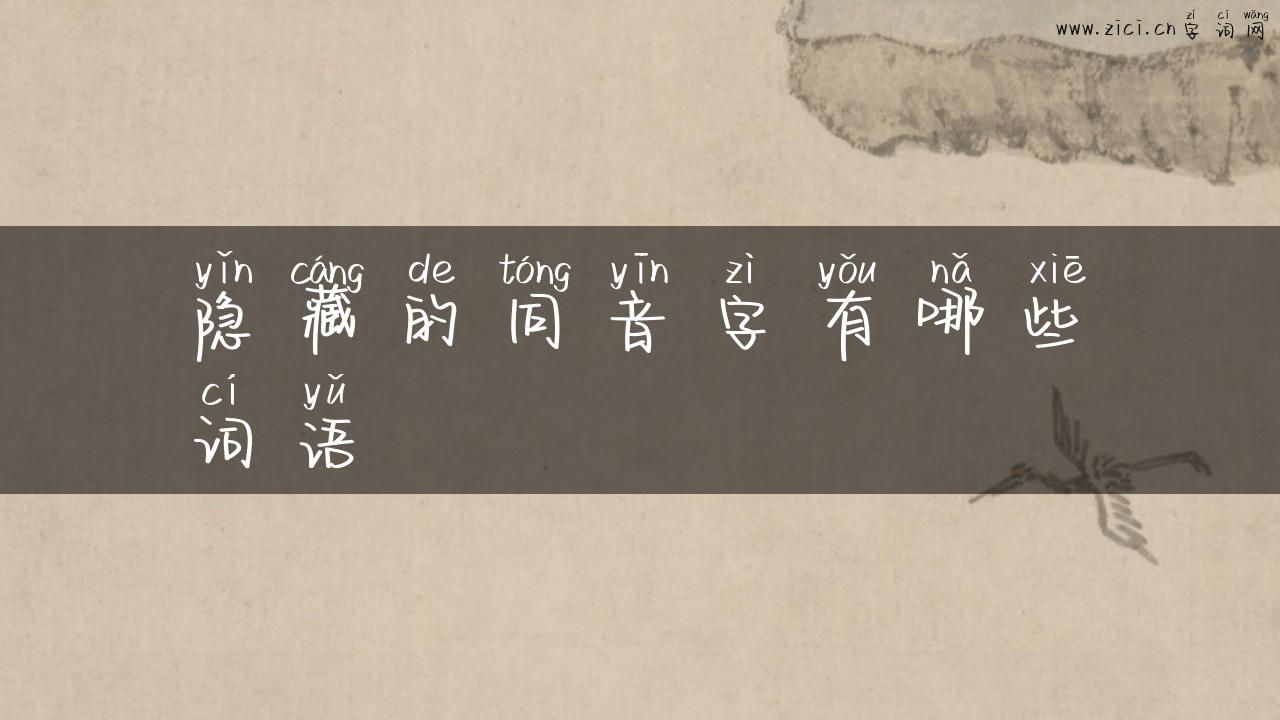 zì cí wǎng
www.zici.cn 字词网
yǐn cáng de tóng yīn zì yǒu nǎ xiē
隐藏的同音字有哪些
cí yǔ
词语